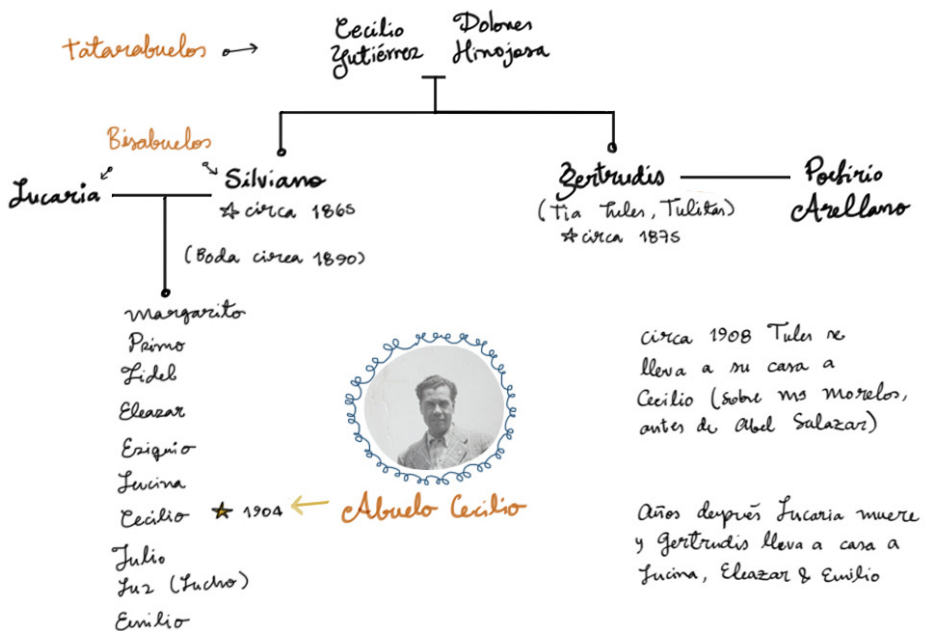 Tatarabuelos
Cecilio Dolores
Gutiérrez Hinojosa
Bisabuelos
Lucaria
Silviano
☆ circa 1865
(Boda circa 1890)
Gertrudis
(Tía Tules, Tulitas)
☆ circa 1875
Porfirio
Arellano
Margarito
Primo
Fidel
Eleazar
Eziquio
Lucina
Cecilio ★ 1904
Abuelo Cecilio
Julio
Luz (Lucho)
Emilio
circa 1908 Tules se
lleva a su casa a
Cecilio (sobre ms morelos,
antes de Abel Salazar)
Años después Lucaria muere
y Gertrudis lleva a casa a
Lucina, Eleazar & Emilio